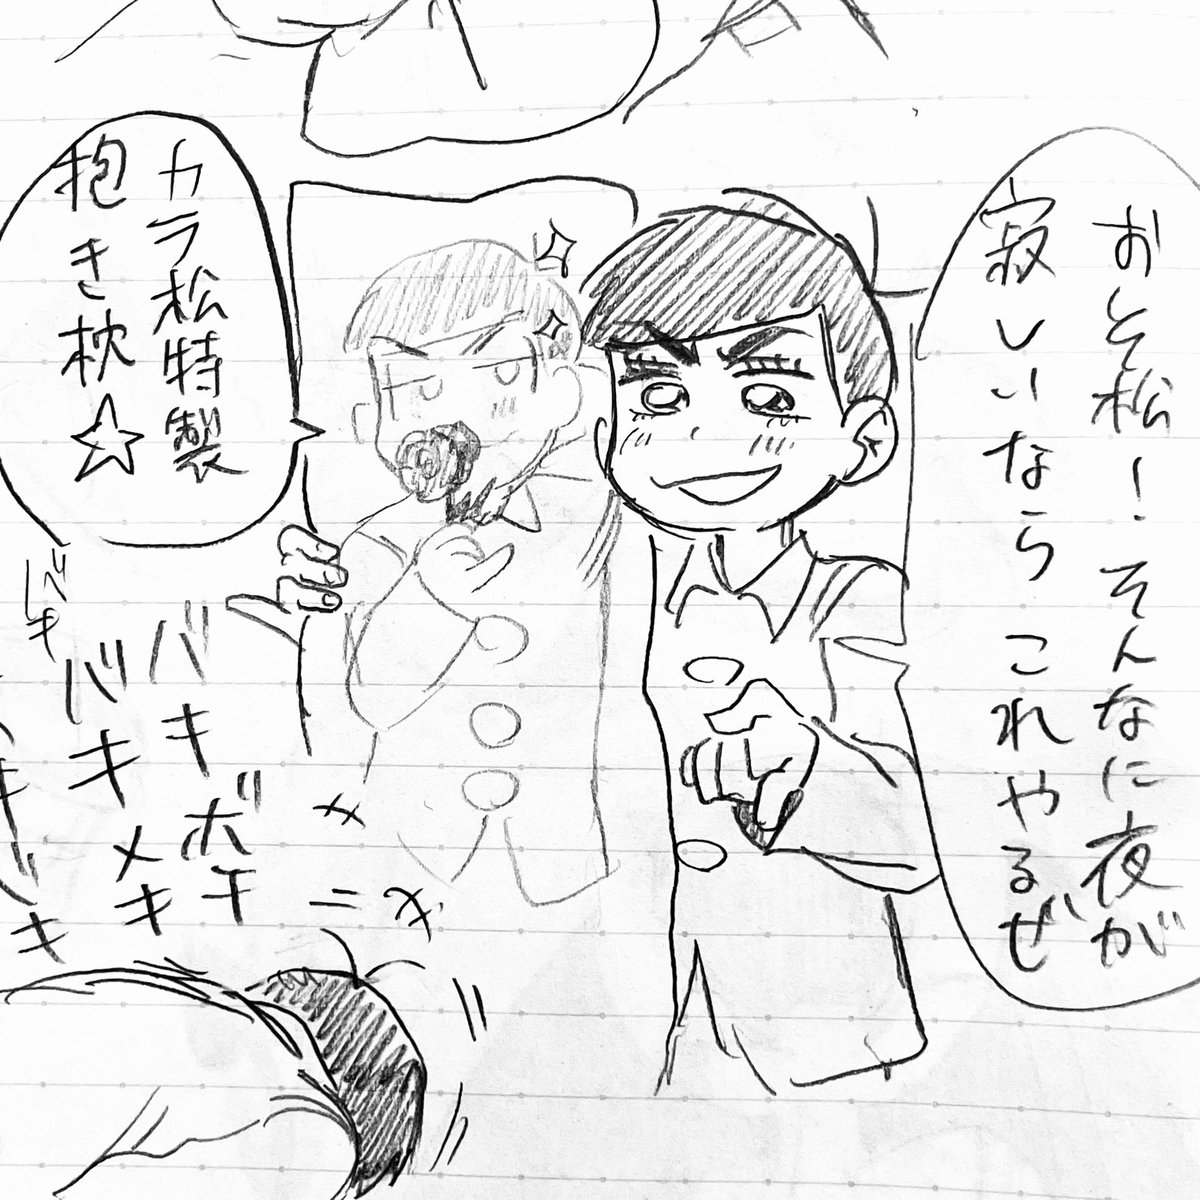 おそ松！そんなに夜が
寂しいなら これやるぜ
カラ松特製
抱き枕☆
バキ ボキ
バキ メキ
バキ